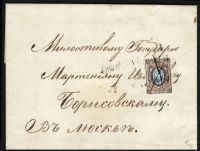 Милостивому Государю
Мартемьяну
Борисовскому.
Въ Москвѣ.